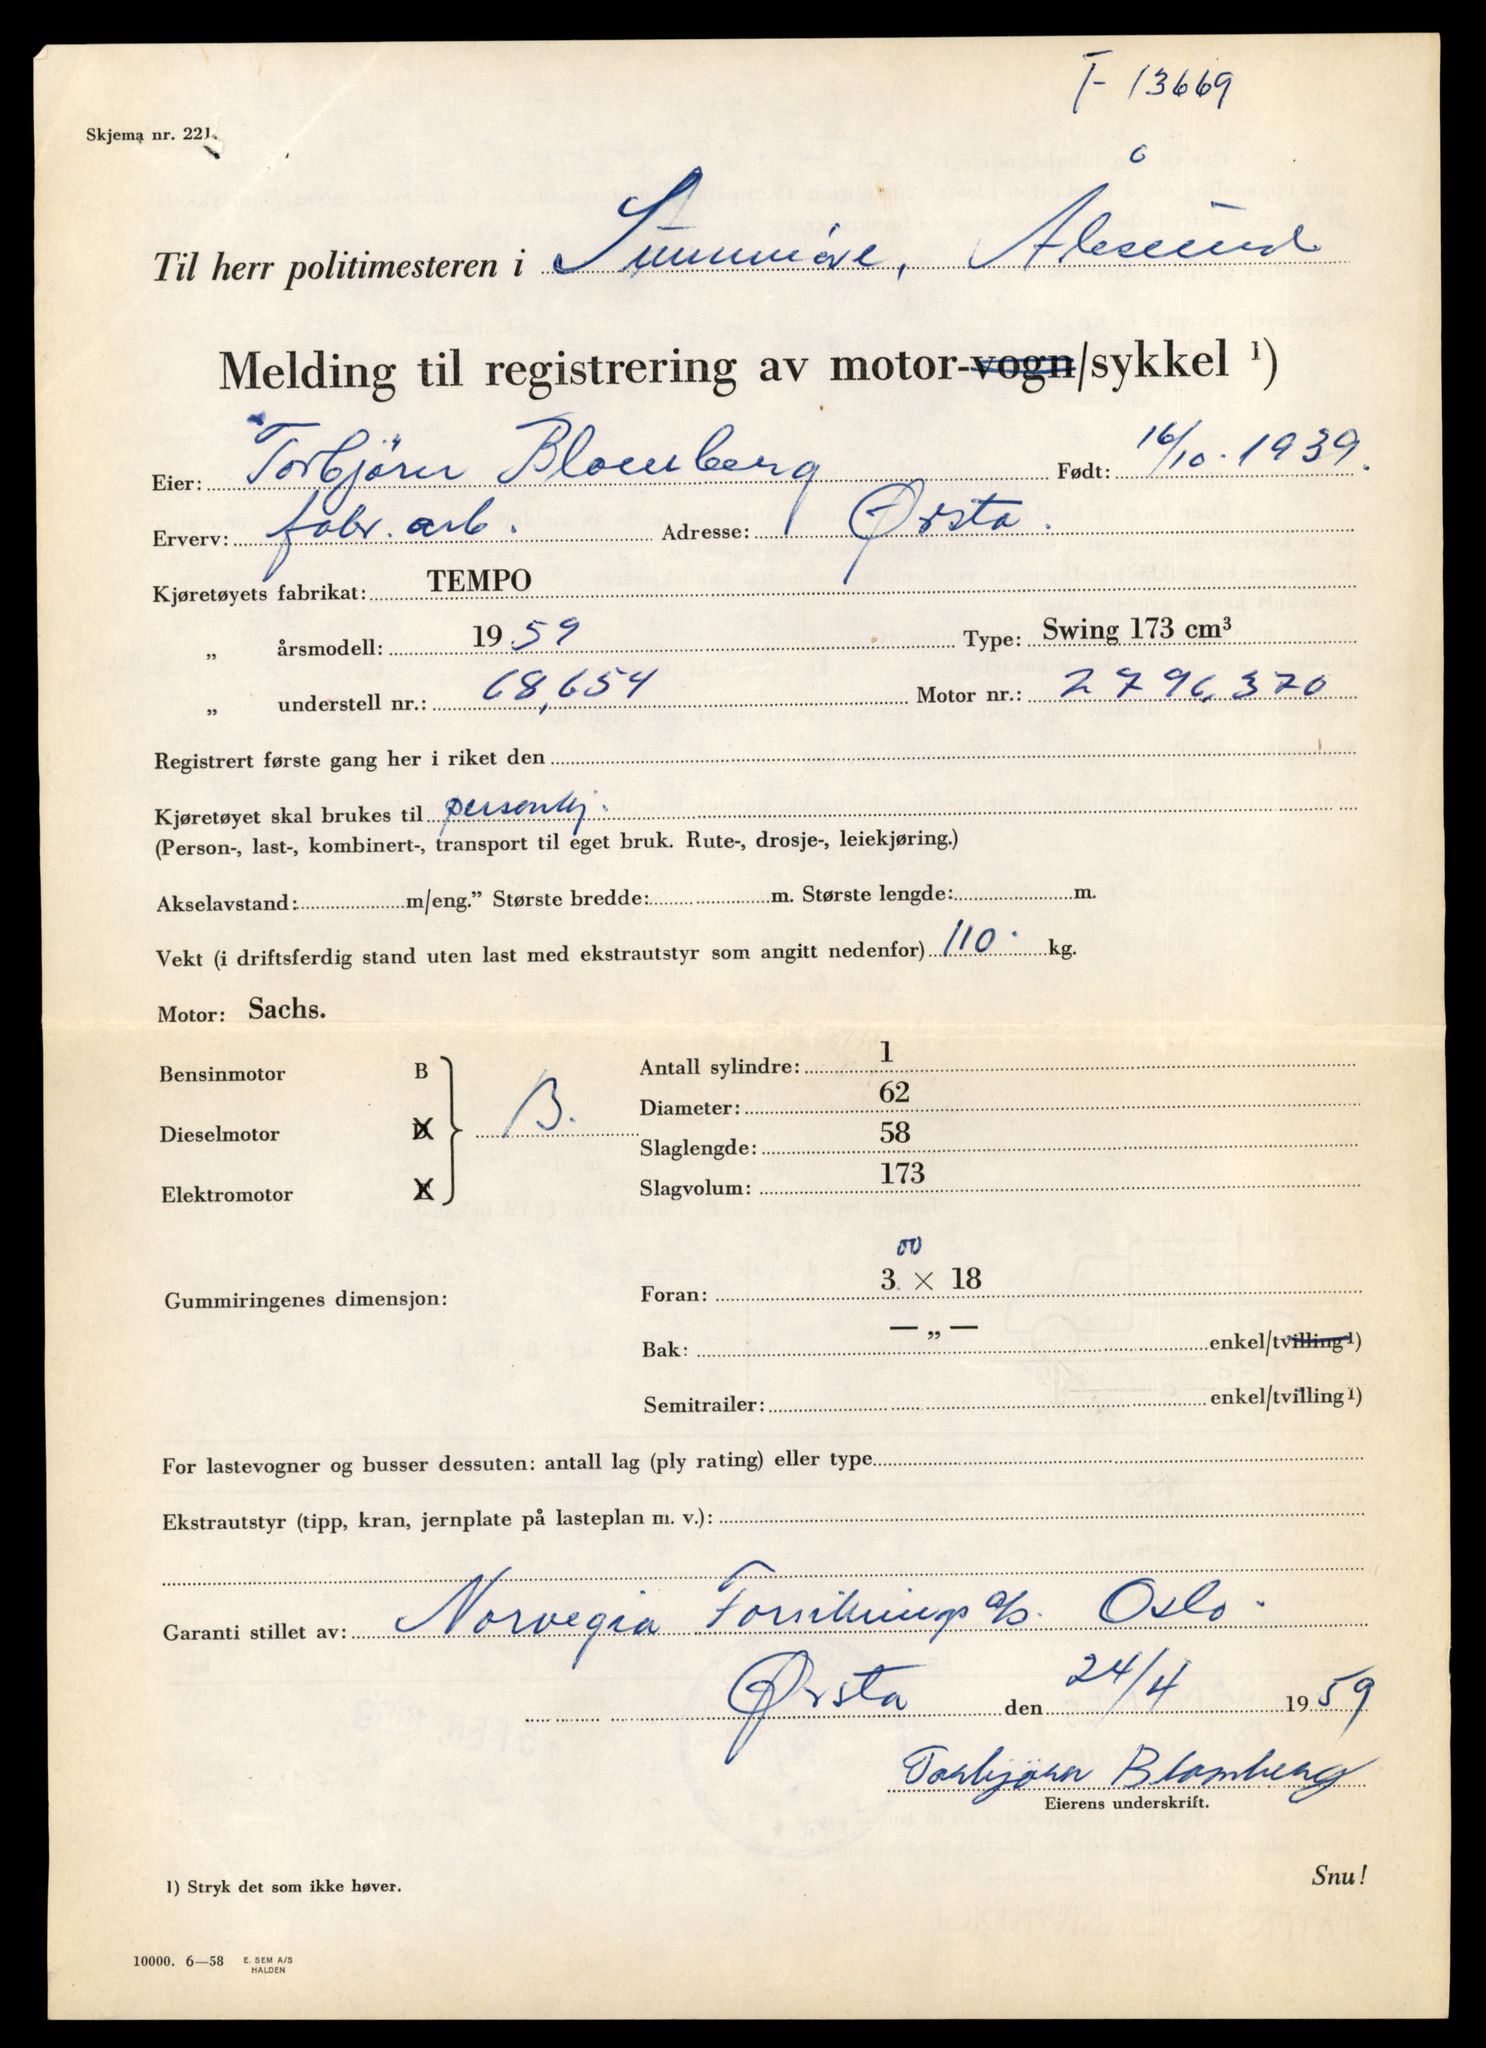 T- 13669
Skjema nr. 221.
Til herr politimesteren i Sunnmøre, Ålesund
Melding til registrering av motor-vogn/sykkel 1)
Eier: Torbjörn Blomberg Født: 16/10. 1939.
Erverv: fabr. arb. Adresse: Ørsta.
Kjøretøyets fabrikat: TEMPO
„ årsmodell: 19 59 Type: Swing 173 cm³
„ understell nr.: 68,654 Motor nr.: 2796,370
Registrert første gang her i riket den
Kjøretøyet skal brukes til personkj.
(Person-, last-, kombinert-, transport til eget bruk. Rute-, drosje-, leiekjøring.)
Akselavstand: m/eng.” Største bredde: m. Største lengde: m.
Vekt (i driftsferdig stand uten last med ekstrautstyr som angitt nedenfor) 110. kg.
Motor: Sachs.
Bensinmotor B } B. Antall sylindre: 1
Diameter: 62
Dieselmotor D Slaglengde: 58
Elektromotor X Slagvolum: 173
00
Gummiringenes dimensjon: Foran: 3. × 18
Bak: — „ — enkel/tvilling 1)
Semitrailer: enkel/tvilling 1)
For lastevogner og busser dessuten: antall lag (ply rating) eller type
Ekstrautstyr (tipp, kran, jernplate på lasteplan m. v.):
Garanti stillet av: Norvegia Forsikrings a/s. Oslo.
Ørsta den 24/4 19 59
Torbjörn Blomberg
Eierens underskrift.
1) Stryk det som ikke høver.
Snu!
10000. 6—58 E. SEM A/S
HALDEN